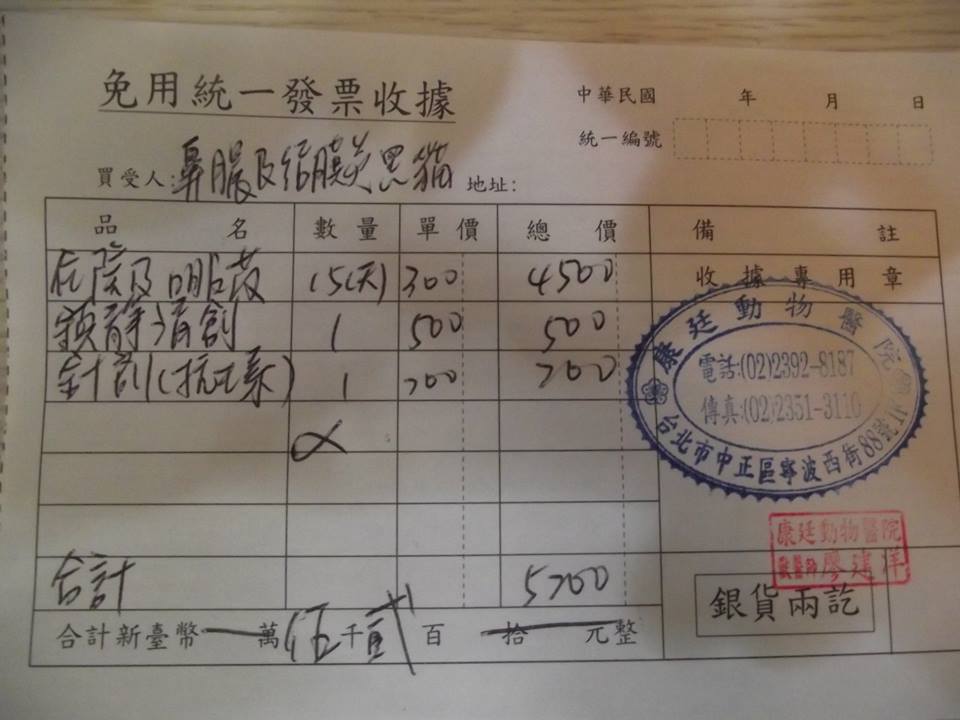 免用統一發票收據
中華民國 年 月 日
統一編號
買受人:鼻膿及結膜炎黑貓 地址:
品名 數量 單價 總價 備註
住院及口服藥 15(天) 300 4500 收據專用章
鎮靜清創 1 500 500
針劑(抗生素) 1 200 200
康廷動物醫院
電話:(02)2392-8187
傳真:(02)2351-3110
台北市中正區寧波西街88號
康廷動物醫院
獸醫師廖建
合計 5200
銀貨兩訖
合計新臺幣 萬伍千貳百 拾 元整